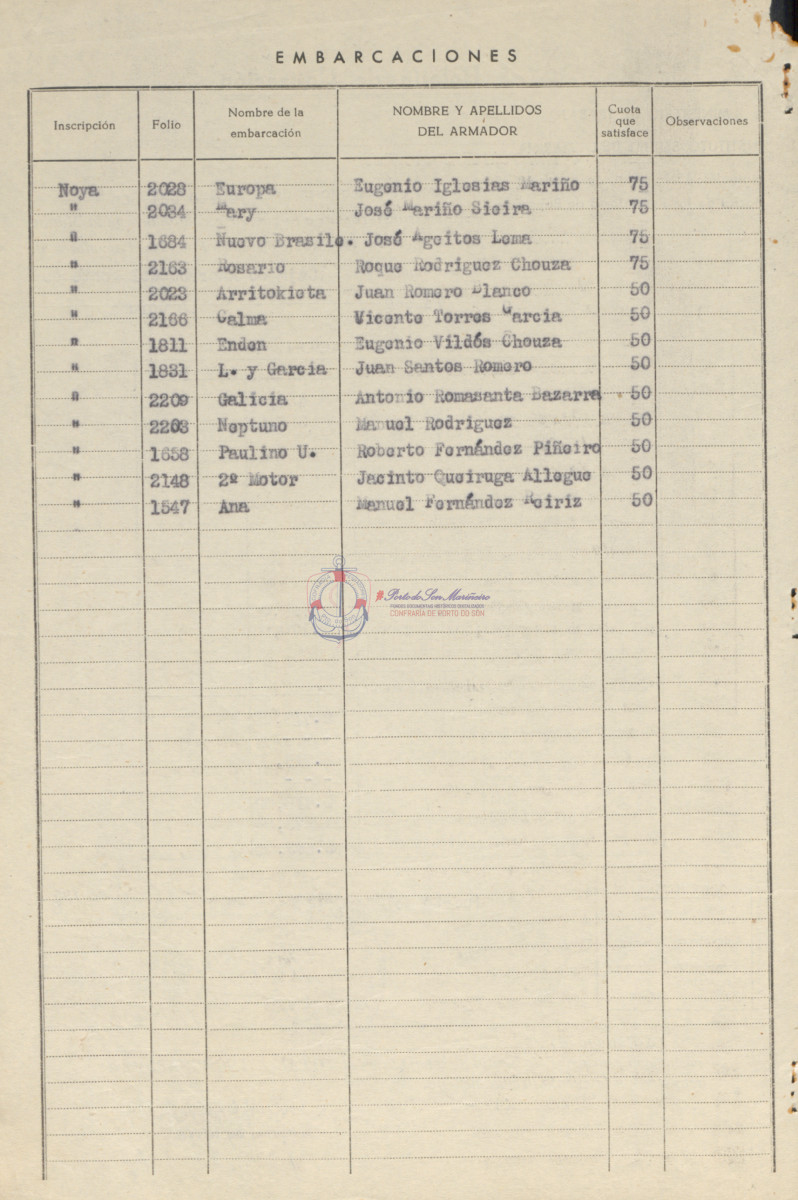 EMBARCACIONES
Inscripción Folio Nombre de la embarcación NOMBRE Y APELLIDOS DEL ARMADOR Cuota que satisface Observaciones
Noya 2028 Europa Eugenio Iglesias Mariño 75
" 2034 Mary José Mariño Sieira 75
" 1684 Nuevo Brasile. José Ageitos Lema 75
" 2163 Rosario Roque Rodriguez Chouza 75
" 2023 Arritokieta Juan Romero Blanco 50
" 2166 Calma Vicente Torres Garcia 50
" 1811 Enden Eugenio Vildós Chouza 50
" 1831 L. y Garcia Juan Santos Romero 50
" 2209 Galicia Antonio Romasanta Bazarra 50
" Neptuno Manuel Rodriguez 50
" 1658 Paulino U. Roberto Fernández Piñeiro 50
" 2148 2º Motor Jacinto Queiruga Allegue 50
" 1547 Ana Manuel Fernández Reiriz 50
Porto do Son Mariñeiro
FONDOS DOCUMENTAIS HISTÓRICOS DIXITALIZADOS
CONFRARÍA DE PORTO DO SON